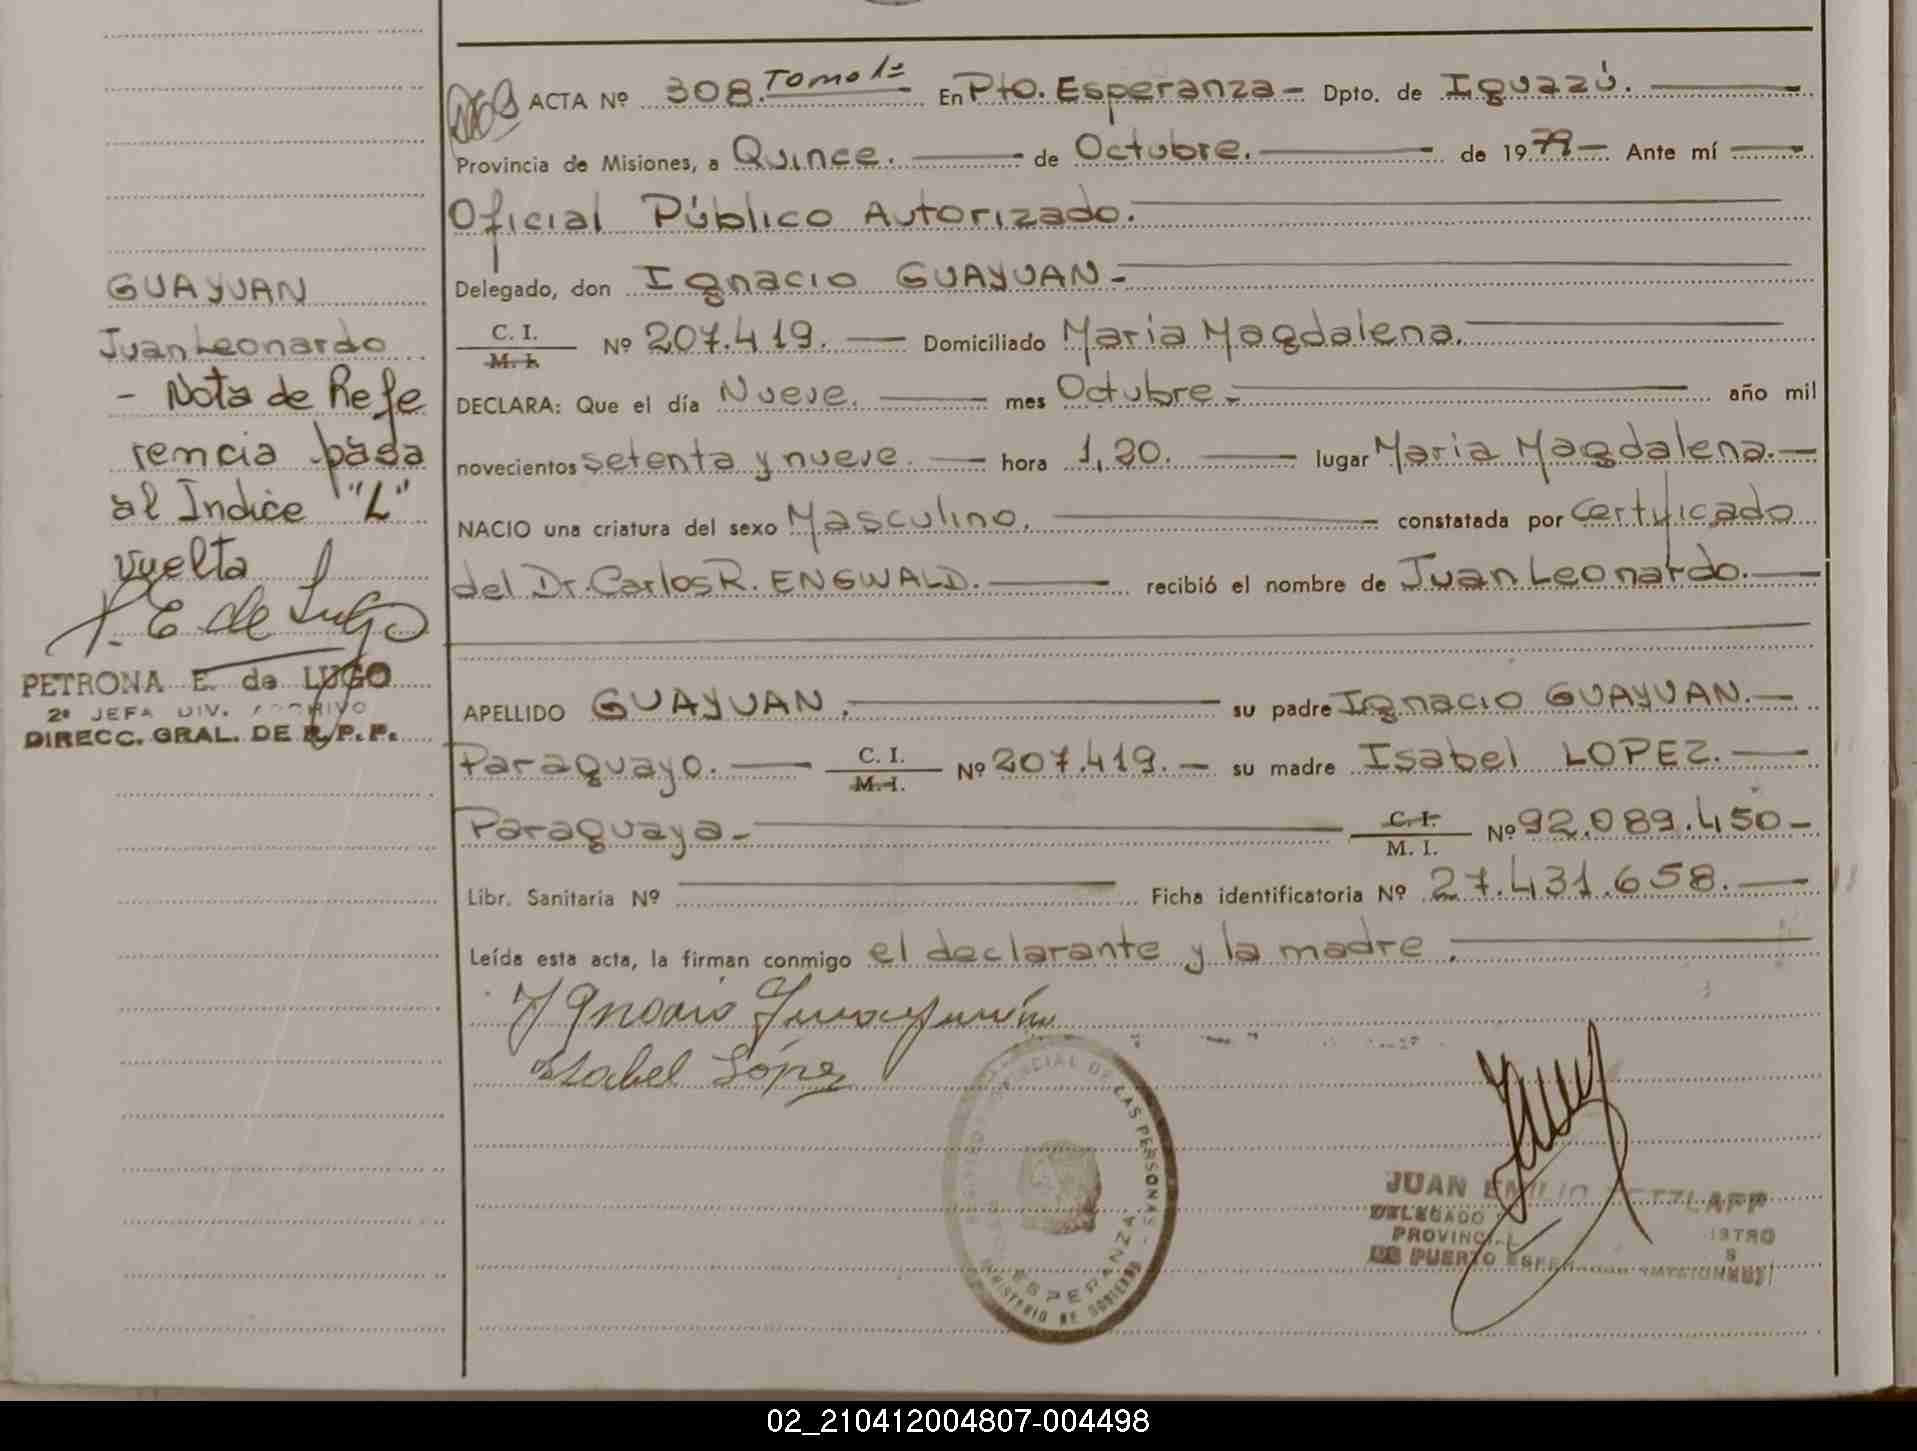 ACTA Nº 308. Tomo 1º En Pto. Esperanza - Dpto. de Iguazú.
Provincia de Misiones, a Quince. de Octubre. de 1979 Ante mí
Oficial Público Autorizado.
Delegado, don Ignacio GUAYUAN -
C. I.
M. I. Nº 207.419. Domiciliado Maria Magdalena.
DECLARA: Que el día Nueve. mes Octubre - año mil
novecientos setenta y nueve. hora 1,30. lugar Maria Magdalena. -
NACIO una criatura del sexo Masculino. constatada por certificado
del Dr. Carlos R. ENGWALD. recibió el nombre de Juan Leonardo.
APELLIDO GUAYUAN. su padre Ignacio GUAYUAN. -
Paraguayo. C. I.
M. I. Nº 207.419. - su madre Isabel LOPEZ.
Paraguaya - C. I.
M. I. Nº 92.089.450 -
Libr. Sanitaria Nº Ficha identificatoria Nº 27.431.658.
Leída esta acta, la firman conmigo el declarante y la madre.
Ygnacio Guayuán
Isabel López
GUAYUAN
Juan Leonardo
- Nota de Refe
rencia pasa
al Indice "L"
vuelta
P. E de Lugo
PETRONA E. de LUGO
2ª JEFA DIV. ARCHIVO
DIRECC. GRAL. DE R. P. P.
PROVINCIAL DE LAS PERSONAS
ESPERANZA
MINISTERIO DE GOBIERNO
JUAN EMILIO
DELEGADO
PROVINCIAL
DE PUERTO ESPERANZA (MISIONES)
02_210412004807-004498